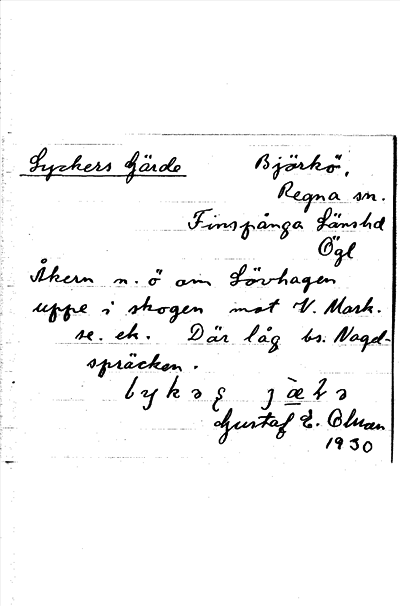 Lyckers Gärde
Björkö,
Regna sn.
Finspånga Länshd
Ögl
Åkern n. ö om Lövhagen
uppe i skogen mot V. Mark.
se. ek. Där låg bs. Nagel-
spräcken.
Gustaf E. Olsson
1930